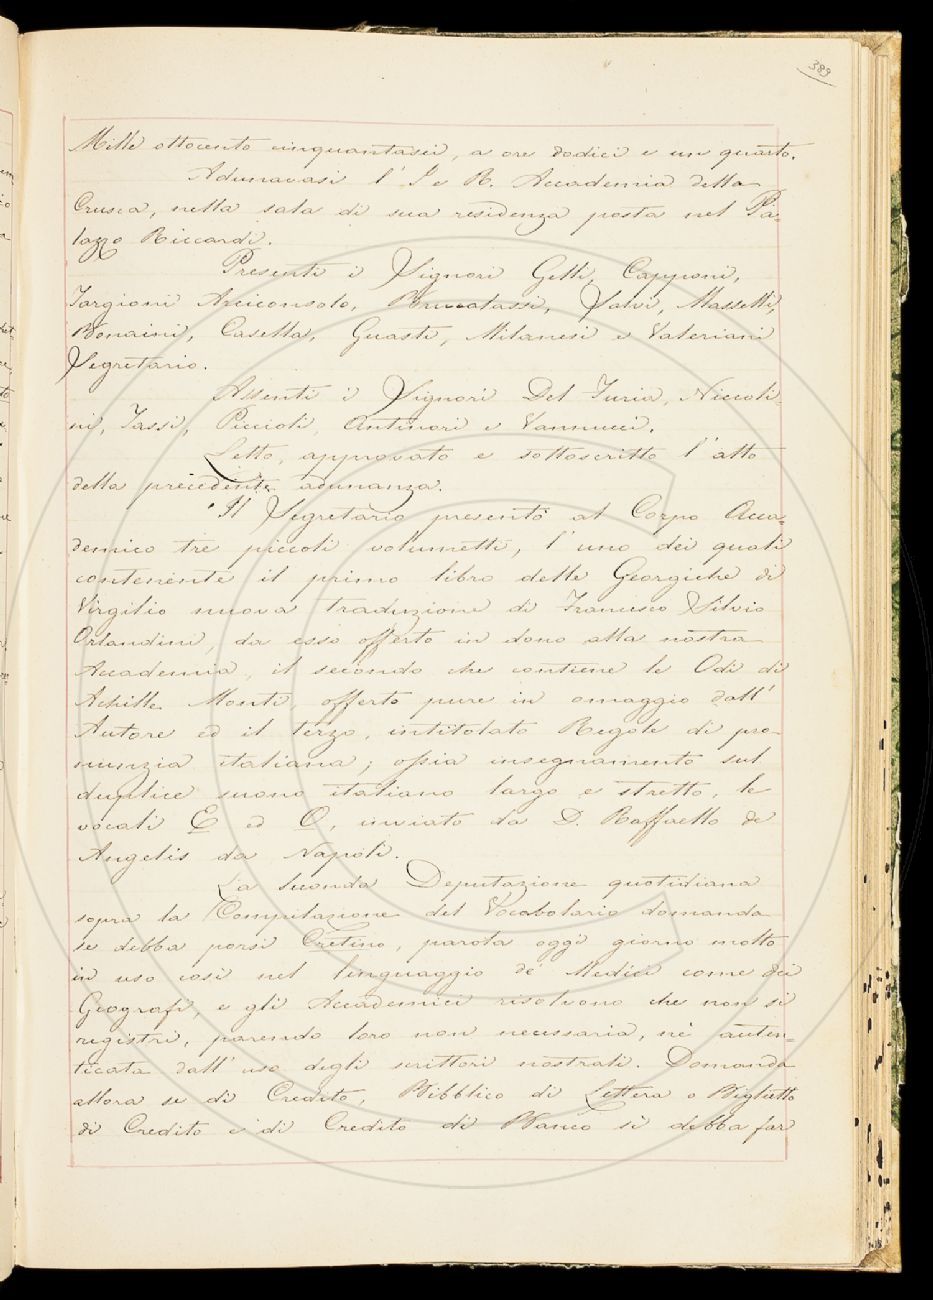 389
Mille ottocento cinquantasei, a ore dodici e un quarto.
Adunavasi l' I e R. Accademia della
Crusca, nella sala di sua residenza posta nel Pa-
lazzo Riccardi.
Presenti i Signori Gelli, Capponi,
Targioni Arciconsolo, Brucalassi, Salvi, Masselli,
Bonaini, Casella, Guasti, Milanesi e Valeriani
Segretario.
Assenti i Signori Del Furia, Niccoli-
ni, Tassi, Piccioli, Antinori e Vannucci.
Letto, approvato e sottoscritto l' atto
della precedente adunanza.
Il Segretario presentò al Corpo Acca-
demico tre piccoli volumetti, l' uno dei quali
contenente il primo libro delle Georgiche di
Virgilio nuova traduzione di Francesco Silvio
Orlandini, da esso offerto in dono alla nostra
Accademia, il secondo che contiene le Odi di
Achille Monti, offerto pure in omaggio dall'
Autore ed il terzo, intitolato Regole di pro-
nunzia italiana; ossia insegnamento sul
duplice suono italiano largo e stretto, le
vocali E ed O, inviato da D. Raffaello de
Angelis da Napoli.
La seconda Deputazione quotidiana
sopra la Compilazione del Vocabolario domanda
se debba porsi Cretino, parola oggi giorno molto
in uso così nel linguaggio de' Medici come dei
Geografi, e gli Accademici risolvono che non si
registri, parendo loro non necessaria, nè auten-
ticata dall' uso degli scrittori nostrali. Domanda
allora se di Credito, Pibblico di Lettera o Biglietto
di Credito e di Credito di Banco si debba far